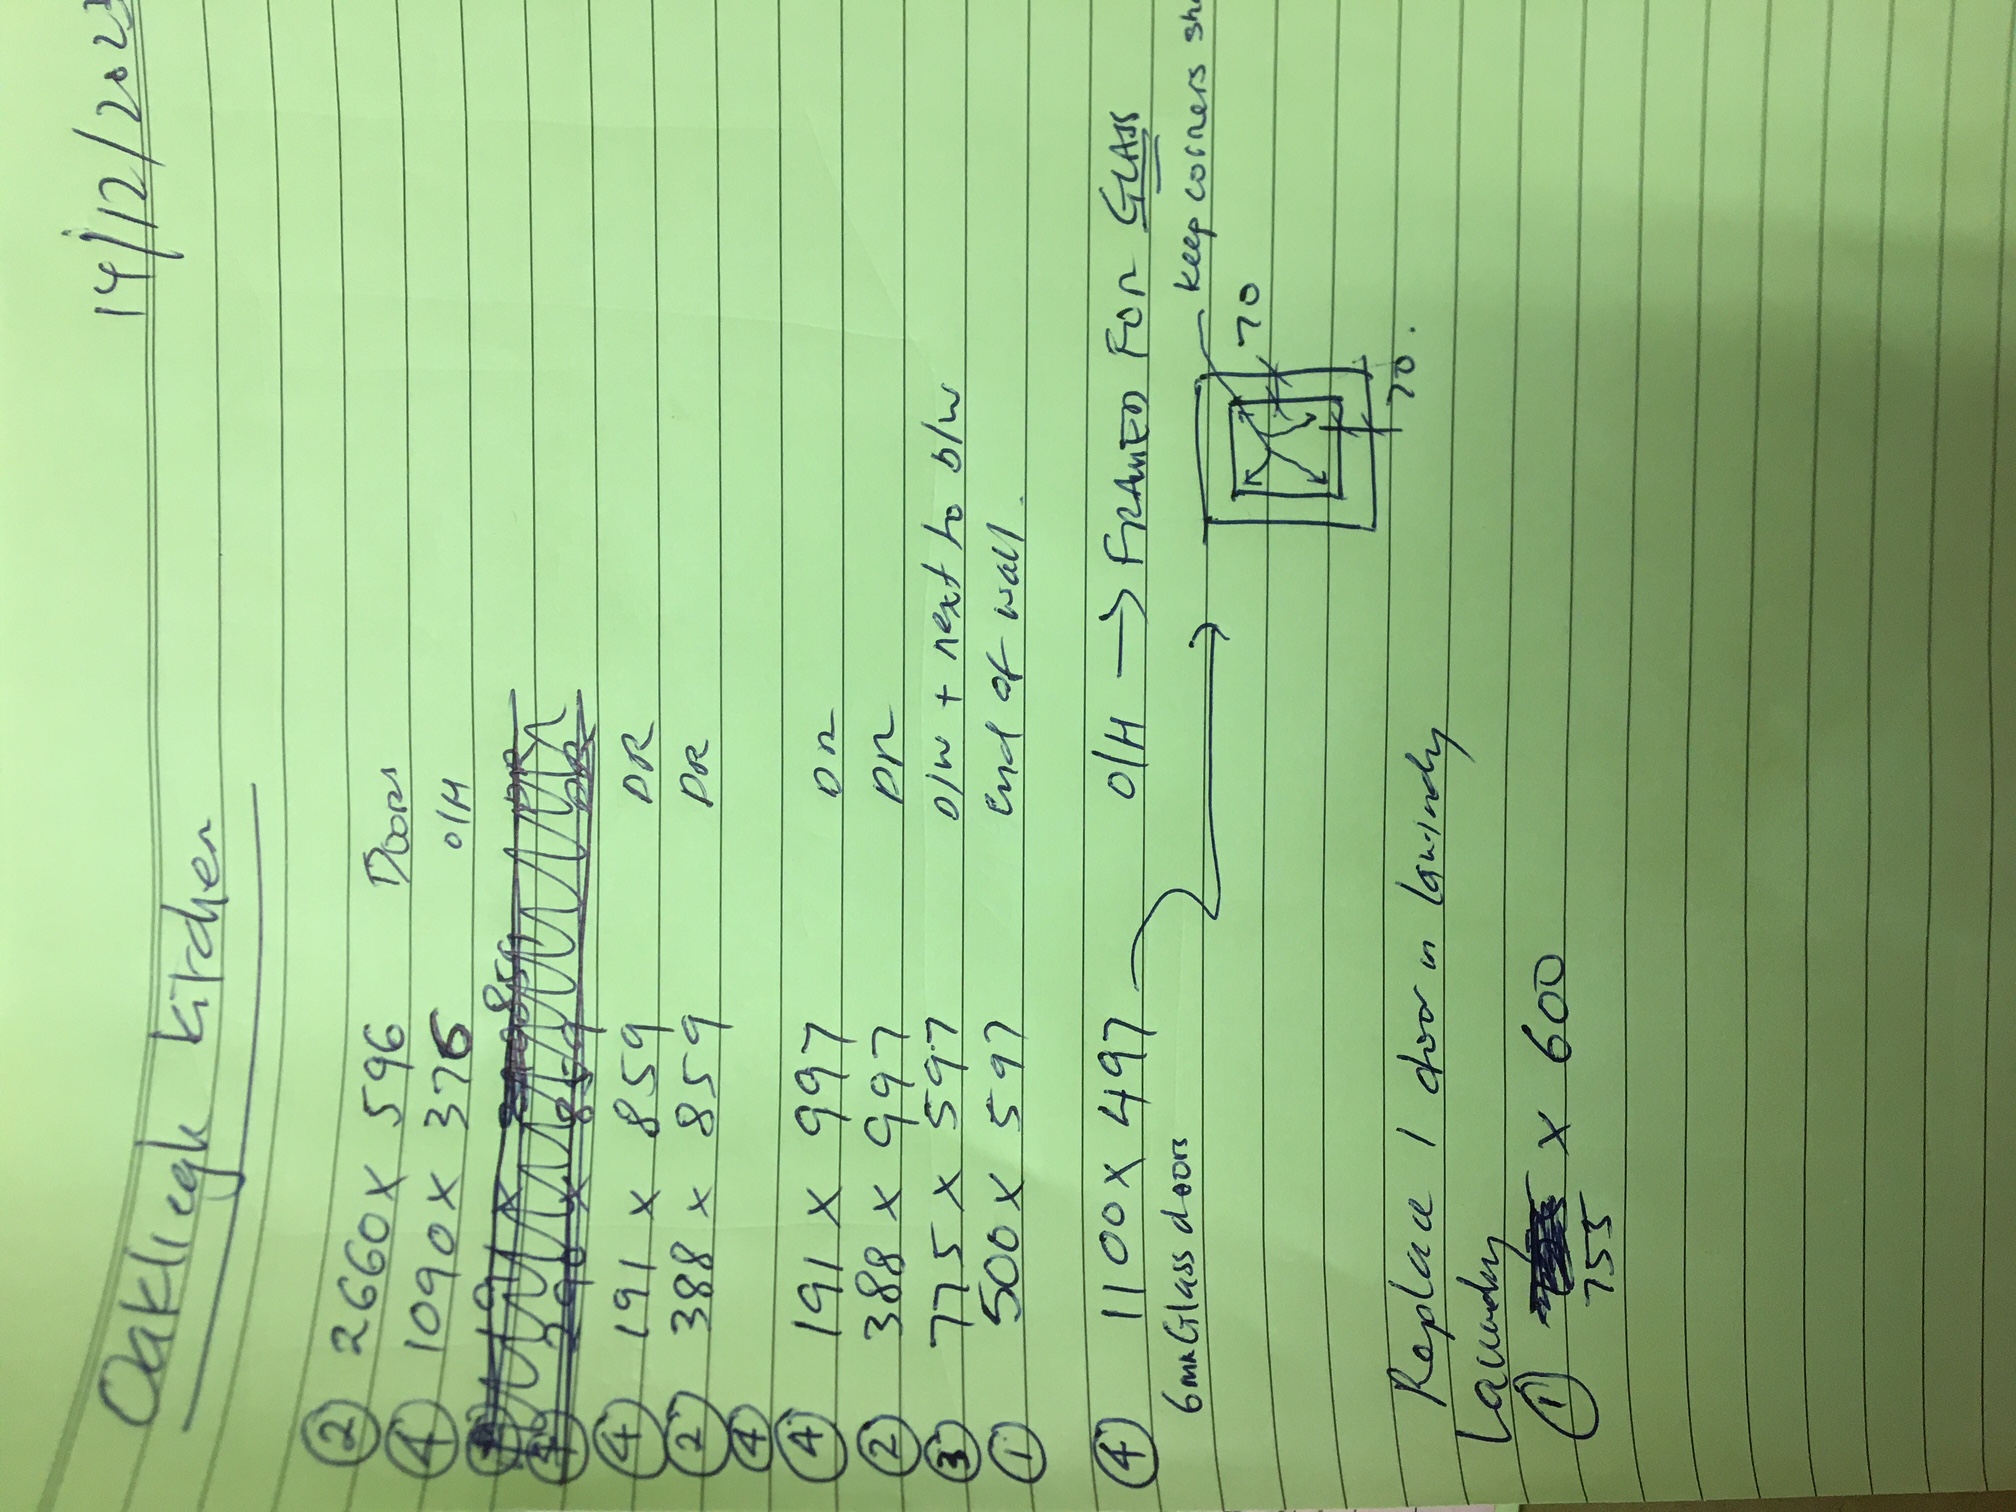 14/12/2023
Oakliegh Kitchen
② 2660 x 596 Doors
④ 1090 x 376 O/H
④ 191 x 859 DR
② 388 x 859 DR
④
④ 191 x 997 DR
② 388 x 997 DR
③ 775 x 597 O/W + next to b/w
① 500 x 597 End of wall
④ 1100 x 497 O/H → FRAMED FOR GLASS
6mm Glass doors
keep corners
70
70.
Replace 1 door in laundry
Laundry
① x 600
755